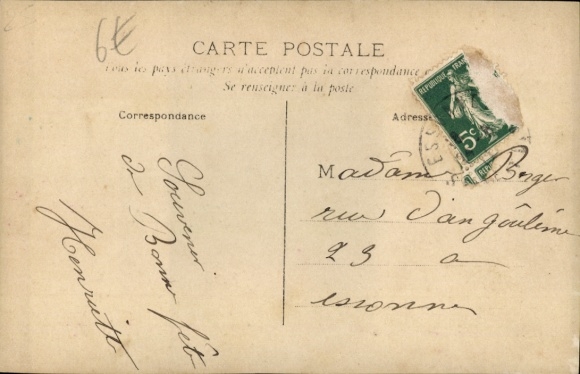 6€
CARTE POSTALE
Tous les pays étrangers n'acceptent pas la correspondance
Se renseigner à la poste
Correspondance
Adresse
REPUBLIQUE FRAN
5c
ESS
Souvenir
de Bonne fête
Henriette
Madame Berger
rue d'angoulème
23 a
essonne